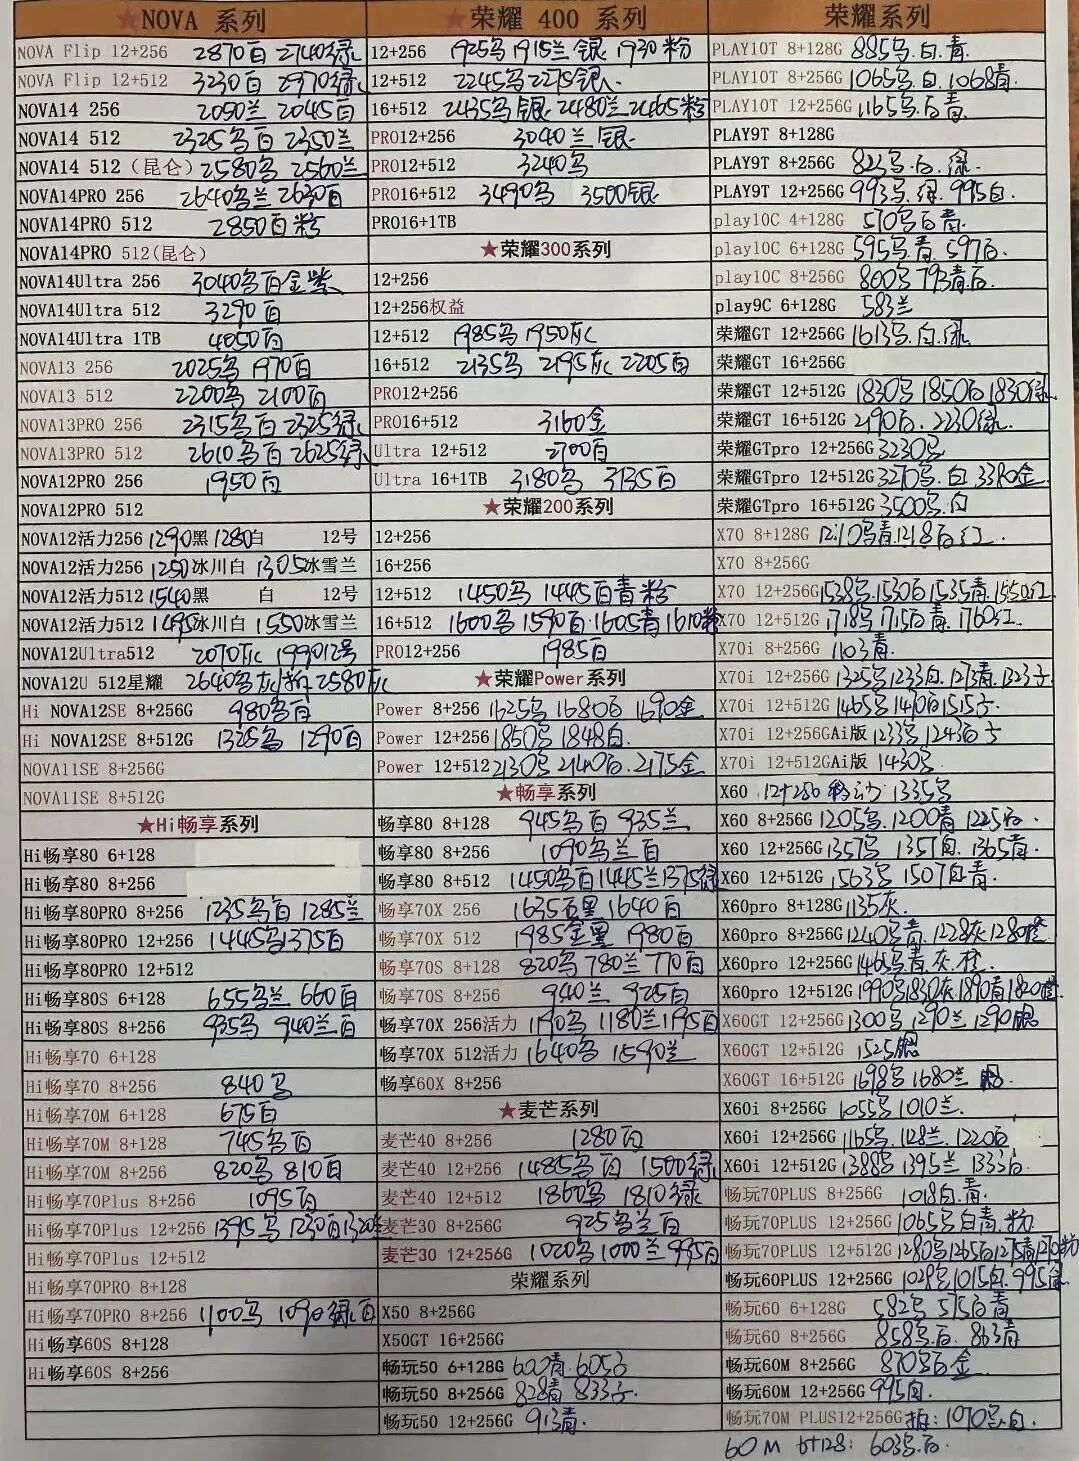 ★NOVA 系列
NOVA Flip 12+256 2870白 2740绿
NOVA Flip 12+512 3230白 2970绿
NOVA14 256 2050兰 2045白
NOVA14 512 2325乌白 2350兰
NOVA14 512(昆仑) 2580乌 2560兰
NOVA14PRO 256 2640乌兰 2630白
NOVA14PRO 512 2850白粉
NOVA14PRO 512(昆仑)
NOVA14Ultra 256 3040乌白金紫
NOVA14Ultra 512 3290白
NOVA14Ultra 1TB 4050白
NOVA13 256 2025乌 1970白
NOVA13 512 2200乌 2100白
NOVA13PRO 256 2315乌白 2325绿
NOVA13PRO 512 2610乌白 2625绿
NOVA12PRO 256 1950白
NOVA12PRO 512
NOVA12活力256 1290黑 1280白 12号
NOVA12活力256 1250冰川白 1305冰雪兰
NOVA12活力512 1540黑 白 12号
NOVA12活力512 1495冰川白 1550冰雪兰
NOVA12Ultra512 2070灰 1990 12号
NOVA12U 512星耀 2640乌灰 2580灰
Hi NOVA12SE 8+256G 980乌白
Hi NOVA12SE 8+512G 1325乌 1290白
NOVA11SE 8+256G
NOVA11SE 8+512G
★Hi畅享系列
Hi畅享80 6+128
Hi畅享80 8+256
Hi畅享80PRO 8+256 1235乌白 1285兰
Hi畅享80PRO 12+256 1445乌1375白
Hi畅享80PRO 12+512
Hi畅享80S 6+128 655乌兰 660白
Hi畅享80S 8+256 935乌 940兰白
Hi畅享70 6+128
Hi畅享70 8+256 840乌
Hi畅享70M 6+128 675白
Hi畅享70M 8+128 745乌白
Hi畅享70M 8+256 820乌 810白
Hi畅享70Plus 8+256 1095白
Hi畅享70Plus 12+256 1395乌 1230白1320兰
Hi畅享70Plus 12+512
Hi畅享70PRO 8+128
Hi畅享70PRO 8+256 1100乌 1090绿白
Hi畅享60S 8+128
Hi畅享60S 8+256
★荣耀 400 系列
12+256 1925乌 1915兰 银 1930粉
12+512 2245乌2275银
16+512 2435乌银 2480兰2465粉
PRO12+256 3040兰 银
PRO12+512 3240乌
PRO16+512 3490乌 3500银
PRO16+1TB
★荣耀300系列
12+256
12+256权益
12+512 1985乌 1950灰
16+512 2135乌 2195灰 2205白
PRO12+256
PRO16+512 3160金
Ultra 12+512 2700白
Ultra 16+1TB 3180乌 3135白
★荣耀200系列
12+256
16+256
12+512 1450乌 1445白青粉
16+512 1600乌 1590白·1605青1610粉
PRO12+256 1985白
★荣耀Power系列
Power 8+256 1625乌 1680白 1690金
Power 12+256 1850乌 1848白.
Power 12+512 2130乌 2140白.2175金
★畅享系列
畅享80 8+128 945乌白 935兰
畅享80 8+256 1090乌兰白
畅享80 8+512 1450乌白1445兰1375绿
畅享70X 256 1635 1640白
畅享70X 512 1985金黑 1980白
畅享70S 8+128 820乌 780兰 770白
畅享70S 8+256 940兰 925白
畅享70X 256活力 1190乌 1180兰1195白
畅享70X 512活力 1640乌 1590兰
畅享60X 8+256
★麦芒系列
麦芒40 8+256 1280白
麦芒40 12+256 1485乌白 1500绿
麦芒40 12+512 1860乌 1810绿
麦芒30 8+256G 925乌兰白
麦芒30 12+256G 1020乌1000兰995白
荣耀系列
X50 8+256G
X50GT 16+256G
畅玩50 6+128G 600青.605
畅玩50 8+256G 828青 833
畅玩50 12+256G 913青.
荣耀系列
PLAY10T 8+128G 885乌.白.青
PLAY10T 8+256G 1065乌.白.1068青
PLAY10T 12+256G 1165乌.白青
PLAY9T 8+128G
PLAY9T 8+256G 乌.白.绿
PLAY9T 12+256G 993乌.绿.995白
play10C 4+128G 570乌白青.
play10C 6+128G 595乌青.597白
play10C 8+256G 800乌 793青白
play9C 6+128G 583兰
荣耀GT 12+256G 1613乌.白.绿
荣耀GT 16+256G
荣耀GT 12+512G 1830乌 1850白 1830绿
荣耀GT 16+512G 2190白.2230绿.
荣耀GTpro 12+256G 3230乌
荣耀GTpro 12+512G 3270乌.白 3380金
荣耀GTpro 16+512G 3500乌.白
X70 8+128G 1210乌青1218白红
X70 8+256G
X70 12+256G 1538乌1530白1535青1550红
X70 12+512G 1718乌1715白青.1760红
X70i 8+256G 1103青.
X70i 12+256G 1325乌1233白.1273青.1323
X70i 12+512G 1465乌1470白1515
X70i 12+256GAi版 1233乌1243白
X70i 12+512GAi版 1430乌
X60 12+256 移动 1335乌
X60 8+256G 1205乌.1200青 1225白.
X60 12+256G 1357乌 1357白.1365青
X60 12+512G 1563乌 1507白青.
X60pro 8+128G 1135灰.
X60pro 8+256G 1240乌青.1228灰1280橙
X60pro 12+256G 1465乌青.灰.橙.
X60pro 12+512G 1990乌1850灰1890青1820橙
X60GT 12+256G 1300乌1290兰1290银
X60GT 12+512G 1525银
X60GT 16+512G 1698乌1680兰 银.
X60i 8+256G 1055乌1010兰.
X60i 12+256G 1165乌.1128兰.1220白
X60i 12+512G 1388乌1395兰 1333白.
畅玩70PLUS 8+256G 1018白.青.
畅玩70PLUS 12+256G 1065乌白青.粉
畅玩70PLUS 12+512G 1280乌1265白1275青1270粉
畅玩60PLUS 12+256G 1028乌1015白.995
畅玩60 6+128G 582乌 575白青
畅玩60 8+256G 858乌.白. 863青
畅玩60M 8+256G 870乌白金
畅玩60M 12+256G 995白.
畅玩70M PLUS12+256G 拍:1070乌.白.
60M 6+128: 603乌.白.